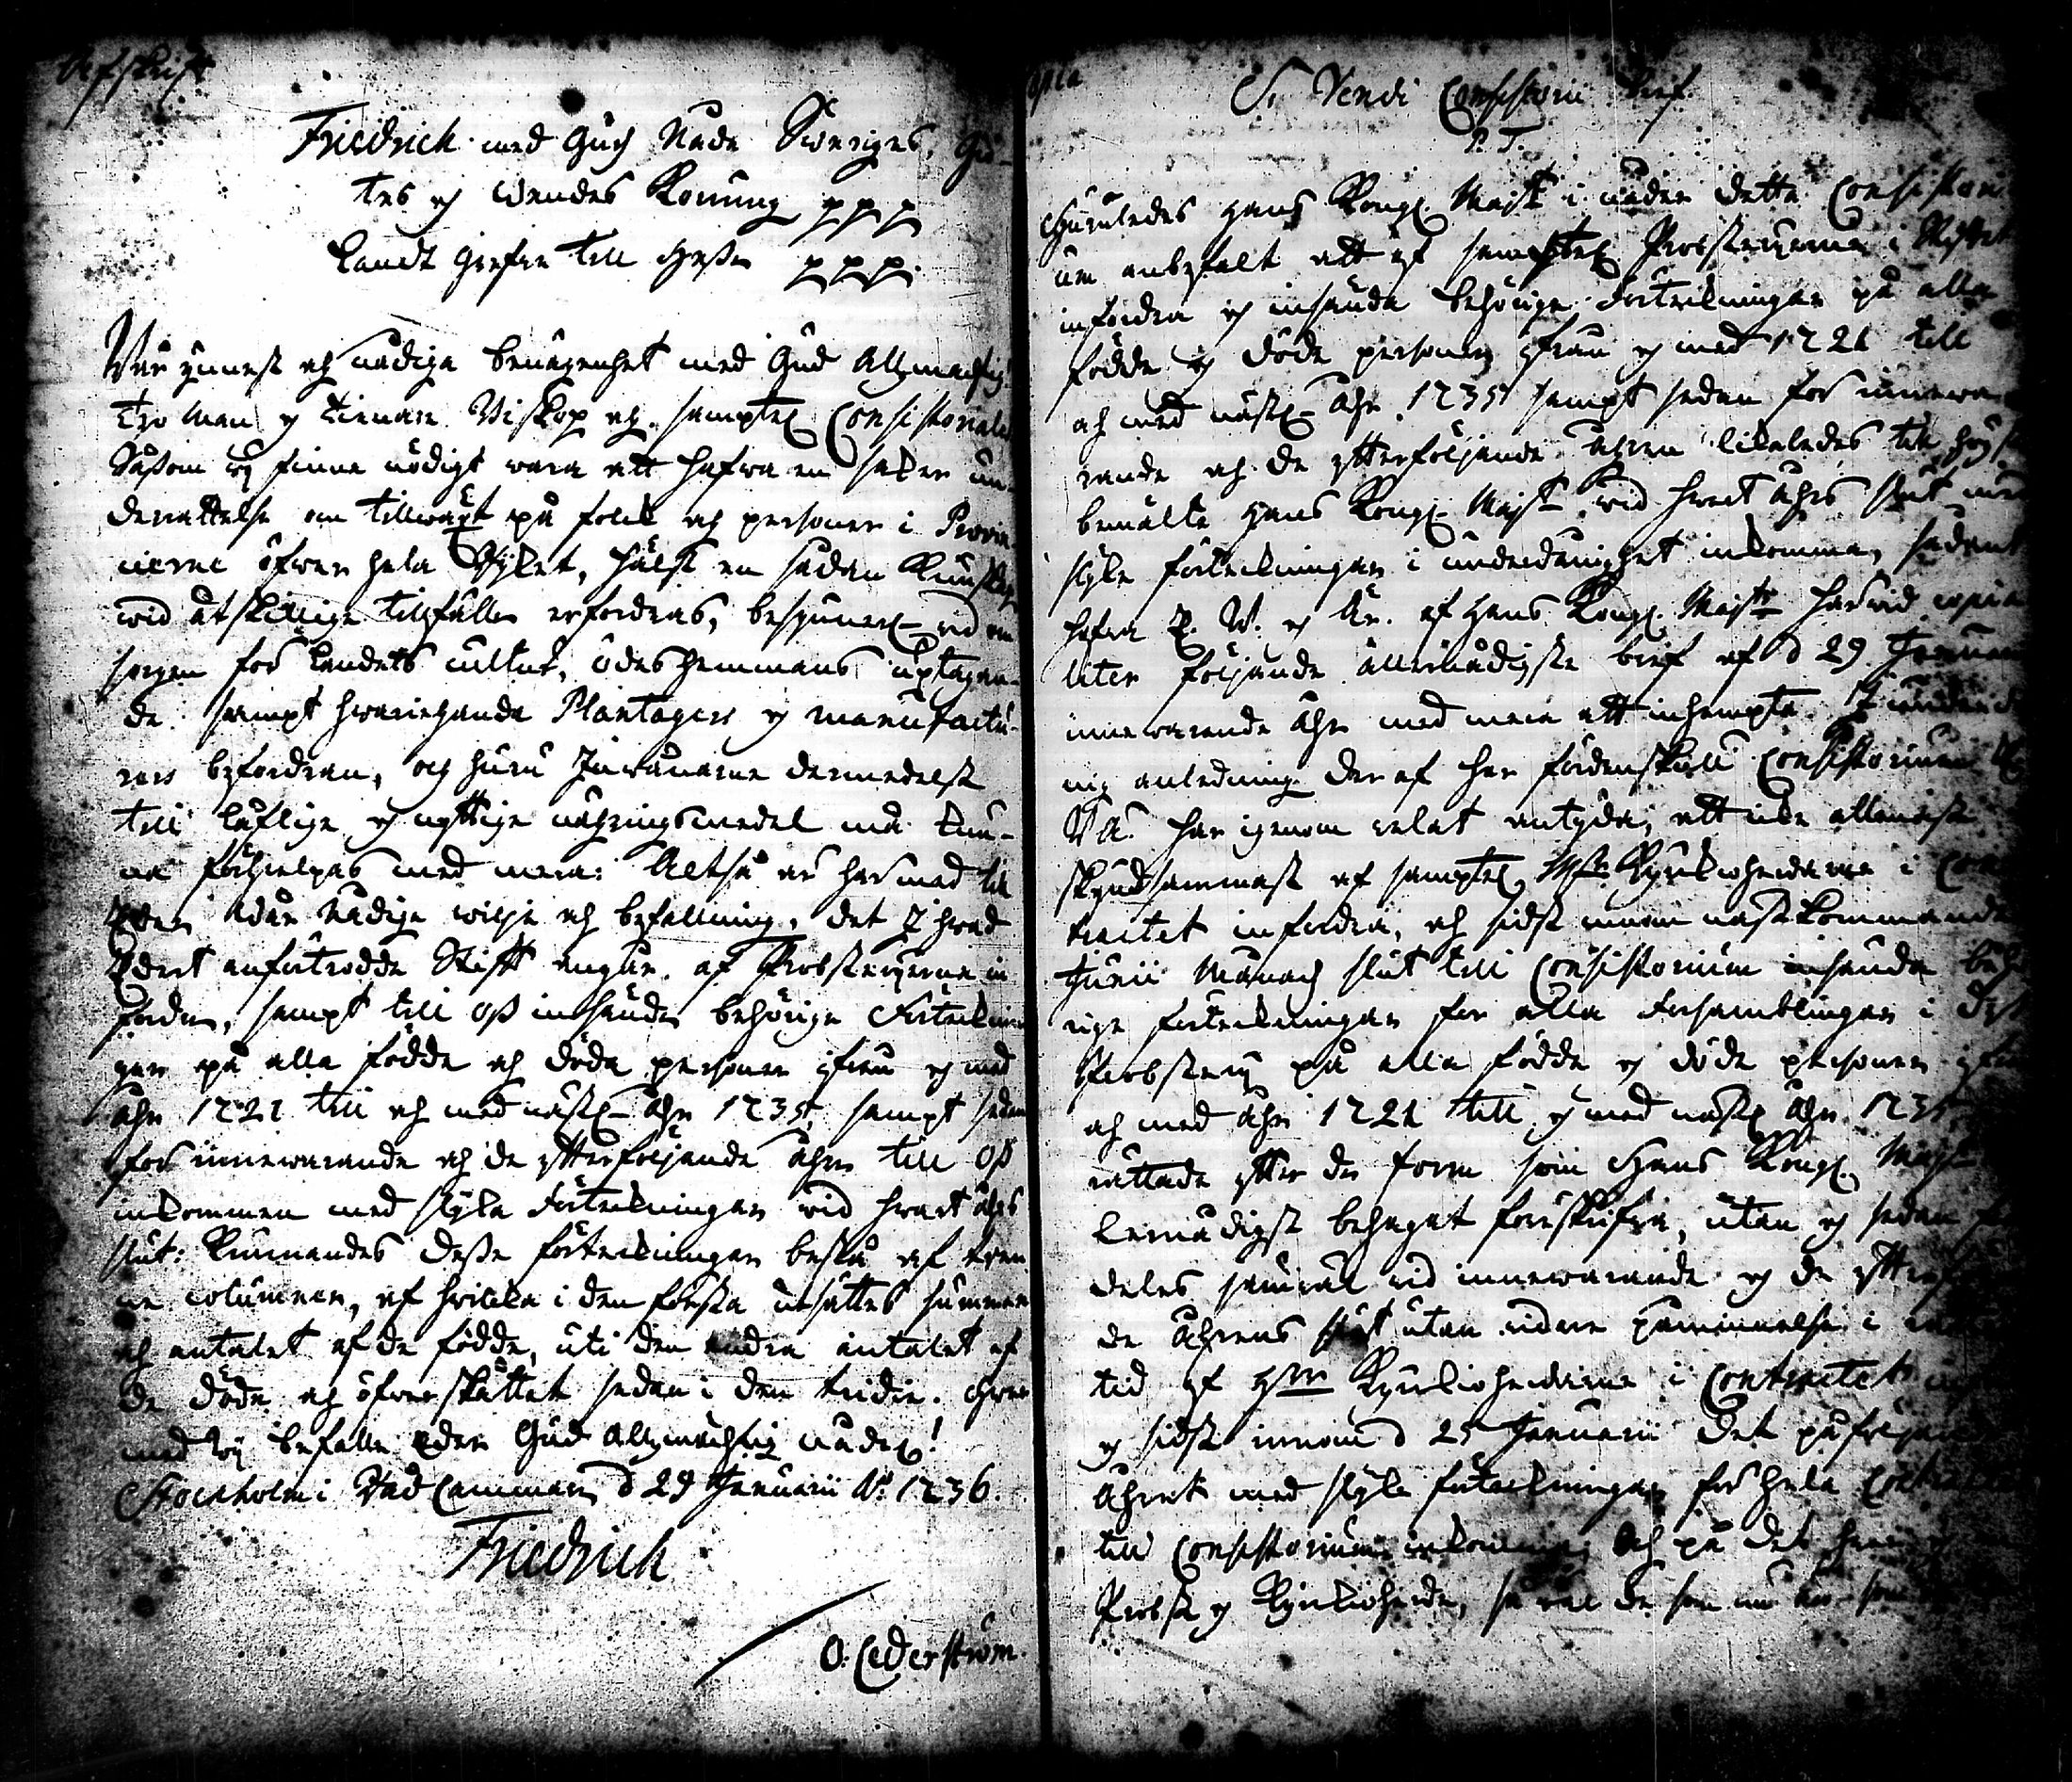 Afskrift
Friedrich med Guds Nåde Sweriges, Giö-
tes och Wendes Konung p p p
Landt Grefwe till Hessen p p p.
Wår ynnest och nådiga benägenhet med Gud Allzmächtig
Tro Man och tienare Biskop och samptel Consistoriales
Såsom wij finne nödigt wara att hafwa en säker un-
derrättelse om tillwäxt på folck och personer i Provin-
cierne öfwer hela Rijket, hälst en sådan Kunskap
wid åtskillige tillfällen erfordras, besynnerl. wid om
sorgen för landets cultur, ödeshemmans uptagan-
de. sampt hwariehanda Plantagers och manufactu-
rers befordran, och huru Inwånarne dermedelst
till låflige och nyttige nähringsmedel må kun-
na förhielpas med mera: Altså är härmed till
Eder wår Nådige wilje och befallning, det I hwad
Edert anförtrodde Stifft angår, af Probsterierne in
fordra, sampt till oss insända behörige Förteckning
gar på alla födde och döda personer ifrån och med
åhr 1721 till och med nästl. åhr 1735, sampt sedan
för innewarande och de efterföljande åhren till oss
inkommen med slijka Förteckningar wid hwart åhrs
slut: kunnandes desse förteckningar bestå af tren
ne columner, af hwilka i den första utsättes summan
och antalet af de födde, uti den andra antalet af
de döde och öfwerskåttet sedan i den tridie. Hwar
med wij befalle eder Gud Allzmächtig nådel!
Stockholm i Råd Cammaren d 29 Januarii A:o 1736.
Friedrich
O: Cederström.
Copia
V. Vendi Consistorii bref.
P. T.
Huruledes Hans Kongl. Maijt i nåder detta Consistori
um anbefalt att af samptel Probsterierna i Stifftet
infordra och insända behörige förteckningar på alla
födde och döde personer ifrån och med 1721 till
och med nästl. åhr 1735 sampt sedan för innewa
rande och de efterföljande åhren likaledes till högst
bemälte Hans Kongl. Maijt wid hwart åhrs slut med
slijke förteckningar i underdånighet inkomma, sådant
hafwa E. W. och Är. af Hans Kongl. Maijts härwid copia
liter följande allernådigste bref af d 29 Januarii
innewarande åhr med mera att inhempta.
anledning deraf har fördenskull Consistorium
härigenom welat antyda, att icke allenast
skyndsammast af samptel. Kyrkioherdarne i Con
tractet infordra, och sidst innom nästkommande
Junii Månads slut till Consistorium insända behö
rige förteckningar för alla Församblingar i
Probsterij på alla födde och döde personer ifrån
och med åhr 1721 till och med nästl. åhr 1735
rättade efter den form som Hans Kongl. Maijt
lernådigst behagat föreskrifwa, utan och sedan
deles jemwäl wid innewarande och de efterföl
de åhrens slut utan widare påminnelse i
tid af H:rr Kyrkioherdarne i Contractet
och sidst innom d 25 Januarii det påföljande
åhret med slijke förteckningar för hela Contractet
till Consistorium inkomma; Och på det
Probst och Kyrkioherde, så wäl de som nu äro som